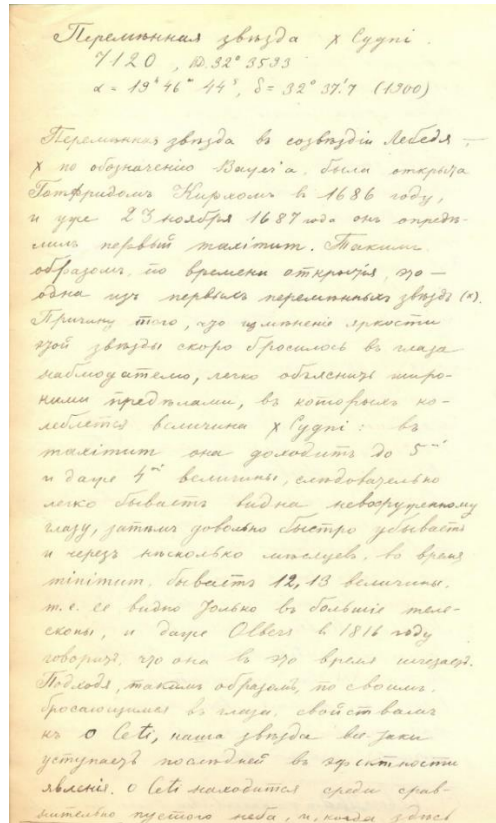 Перемѣнная звѣзда χ Cygni.
7120, D. 32° 3593
α = 19ʰ 46ᵐ 44ˢ, δ = 32° 37.′7 (1900)
Перемѣнная звѣзда въ созвѣздіи Лебедя –
χ по обозначенію Bayer'a, была открыта
Готфридомъ Кирхомъ въ 1686 году,
и уже 23 ноября 1687 года онъ опредѣ-
лилъ первый maximum. Такимъ
образомъ, по времени открытія, это –
одна изъ первыхъ перемѣнныхъ звѣздъ (*).
Причину того, что измѣненіе яркости
этой звѣзды скоро бросилось въ глаза
наблюдателю, легко объяснить широ-
кими предѣлами, въ которыхъ ко-
леблется величина χ Cygni: въ
maximum она доходитъ до 5ᵐⁱ
и даже 4ᵐⁱ величины, слѣдовательно
легко бываетъ видна невооруженному
глазу, затѣмъ довольно быстро убываетъ
и черезъ нѣсколько мѣсяцевъ, во время
minimum, бываетъ 12, 13 величины,
т.е. ее видно только въ большіе теле-
скопы, и даже Olbers въ 1816 году
говоритъ, что она въ это время исчезаетъ.
Подходя, такимъ образомъ, по своимъ,
бросающимся въ глаза, свойствамъ
къ ο Ceti, наша звѣзда все-таки
уступаетъ послѣдней въ эфектности
явленія. ο Ceti находится среди срав-
нительно пустого неба, и, когда здѣсь